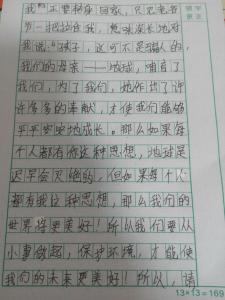 我"正要转身回家,只见老爷
爷一把拉住我,意味深长地对
我说:"孩子,这可不是骗人的,
我们的母亲——地球,哺育了
我们,为了我们,她作出了许
许多多的奉献,才使我们能够
平平安安地成长。那么如果每
个人都有你这种思想,地球是
迟早会灭绝的,但如果每个人
都有我这种思想,那么我们的
世界将更美好!所以我们要从
小事做起,保护环境,才能使
我们的未来更美好!所以,请
13×13=169